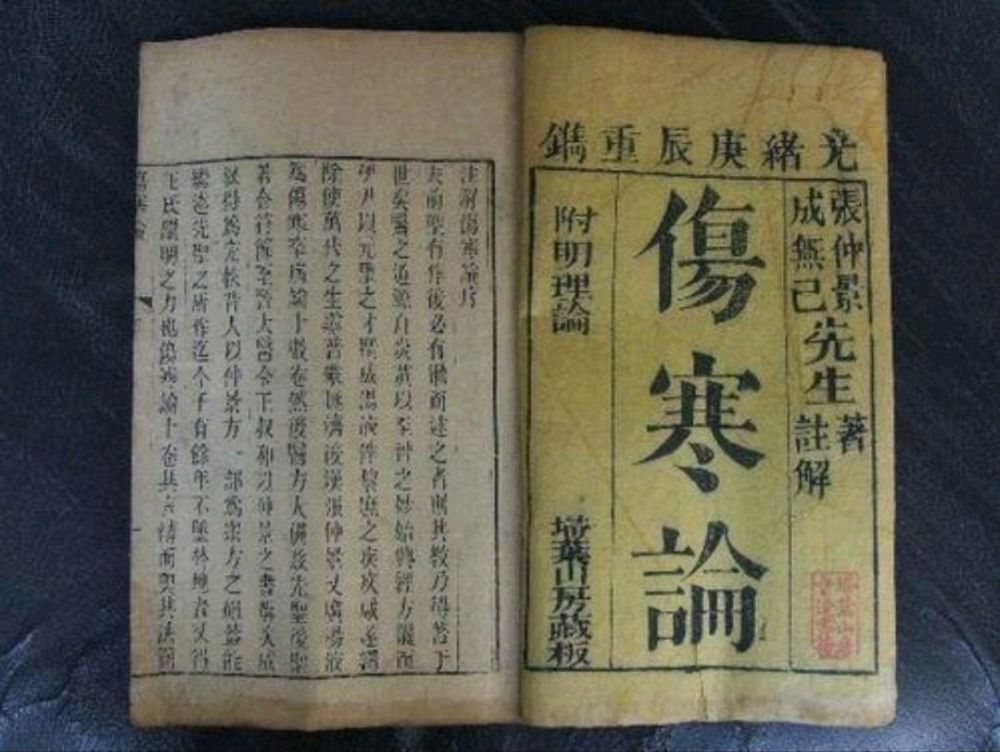 光緒庚辰重鐫
張仲景先生著
成無己先生註解
傷寒論
附明理論
埽葉山房藏板
注解傷寒論序
夫前聖有作後必有繼而述之者則其教乃得著于
世矣醫之道源自炎黃以至神之妙始興經方繼而
伊尹以元聖之才撰成湯液俾黎庶之疾疢咸遂蠲
除使萬代之生靈普蒙拯濟後漢張仲景又廣湯液
爲傷寒卒病論十數卷然後醫方大備茲先聖後聖
若合符節至晉太醫令王叔和以仲景之書撰次成
敘得爲完秩昔人以仲景方一部爲衆方之祖蓋能
繼述先聖之所作迄今千有餘年不墜於地者又得
王氏闡明之力也傷寒論十卷其言精而奧其法簡